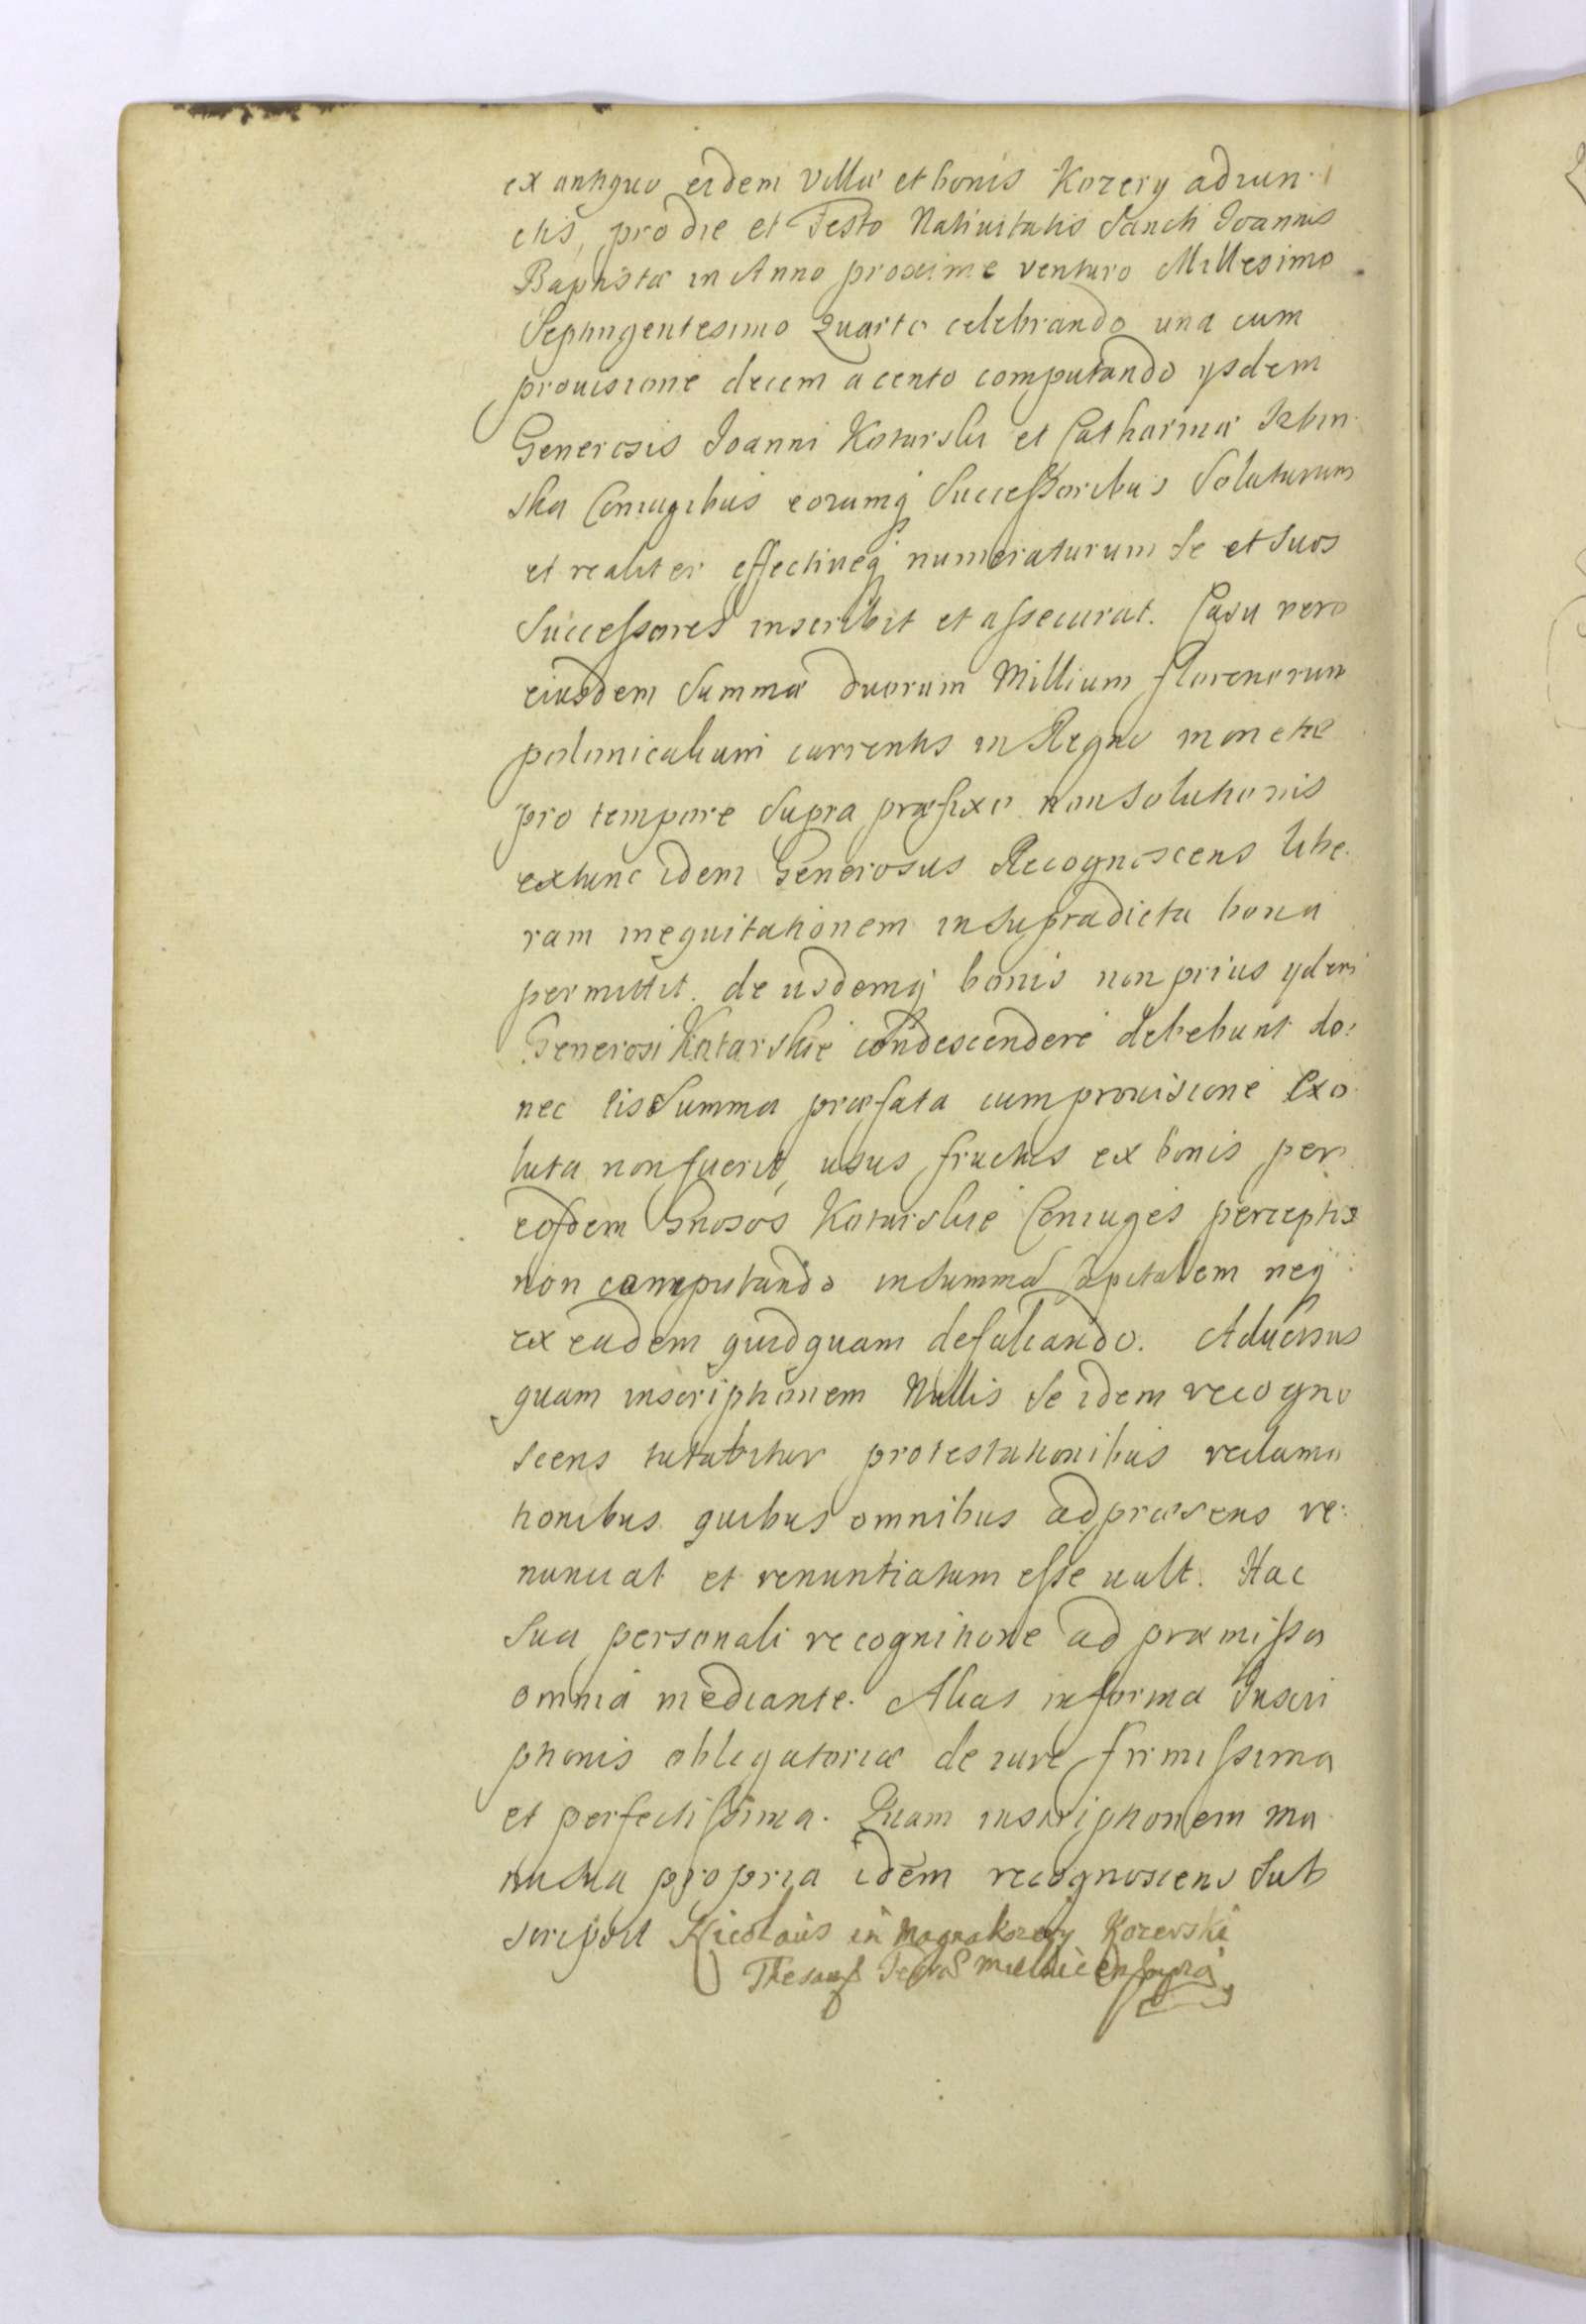 ex antiquo eidem Villæ et bonis Kozery adiun
ctis, pro die et Festo Natiuitatis Sancti Ioannis
Baptistæ in Anno proxime venturo Millesimo
Septingentesimo Quarto celebrando una cum
prouisione decem a cento computando ysdem
Generosis Ioanni Kotarski et Catharinæ Izbin
ska Coniugibus eorumq Successoribus Soluturum
et realiter effectiueq numeraturum se et suos
Successores inscribit et assecurat. Casu vero
eiusdem Summæ duorum Millium florenorum
polonicalium currentis in Regno monetæ
pro tempore supra præfixo non solutionis
extunc idem Generosus Recognoscens libe
ram inequitationem in supradicta bona
permittit. de iisdemq bonis non prius ydem
Generosi Kotarskie condescendere debebunt do:
nec eis Summa præfata cum prouisione exo
luta non fuerit, usus fructus ex bonis per
eosdem Gnosos Kotarskie Coniuges perceptis
non computando in summa Capitalem neq
ex eadem quidquam defalcando. Aduersus
quam inscriptionem Nullis se idem recogno
scens tutabitur protestationibus reclama
tionibus quibus omnibus ad præsens re:
nunciat et renuntiatum esse uult. Hac
sua personali recognitione ad præmissa
omnia mediante. Alias in forma Inscri
ptionis obligatoriæ de iure firmissima
et perfectissima. Quam inscriptionem ma
nu sua propria idem recognoscens sub
scripsit Nicolaus in Magna kozery Kozerski
Thesaur Terræ